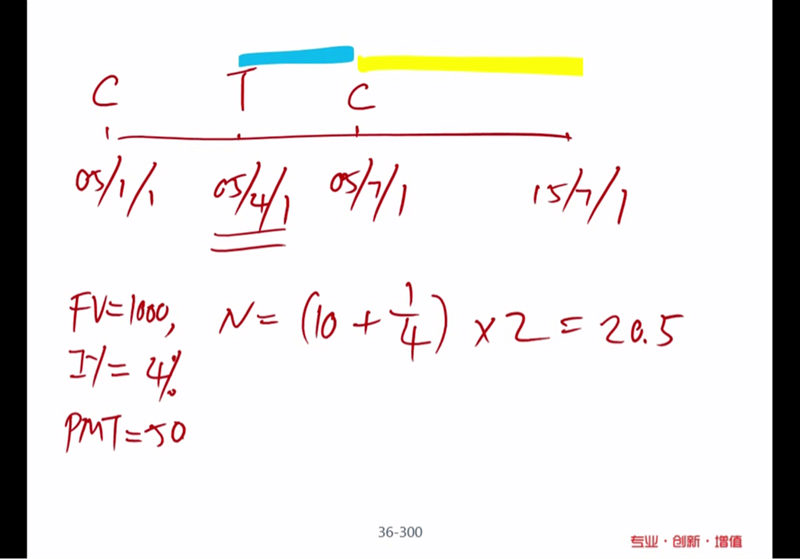 C T C
05/1/1 05/4/1 05/7/1 15/7/1
FV=1000, N= (10 + 1/4) × 2 = 20.5
I/Y= 4%
PMT=50
36-300
专业·创新·增值